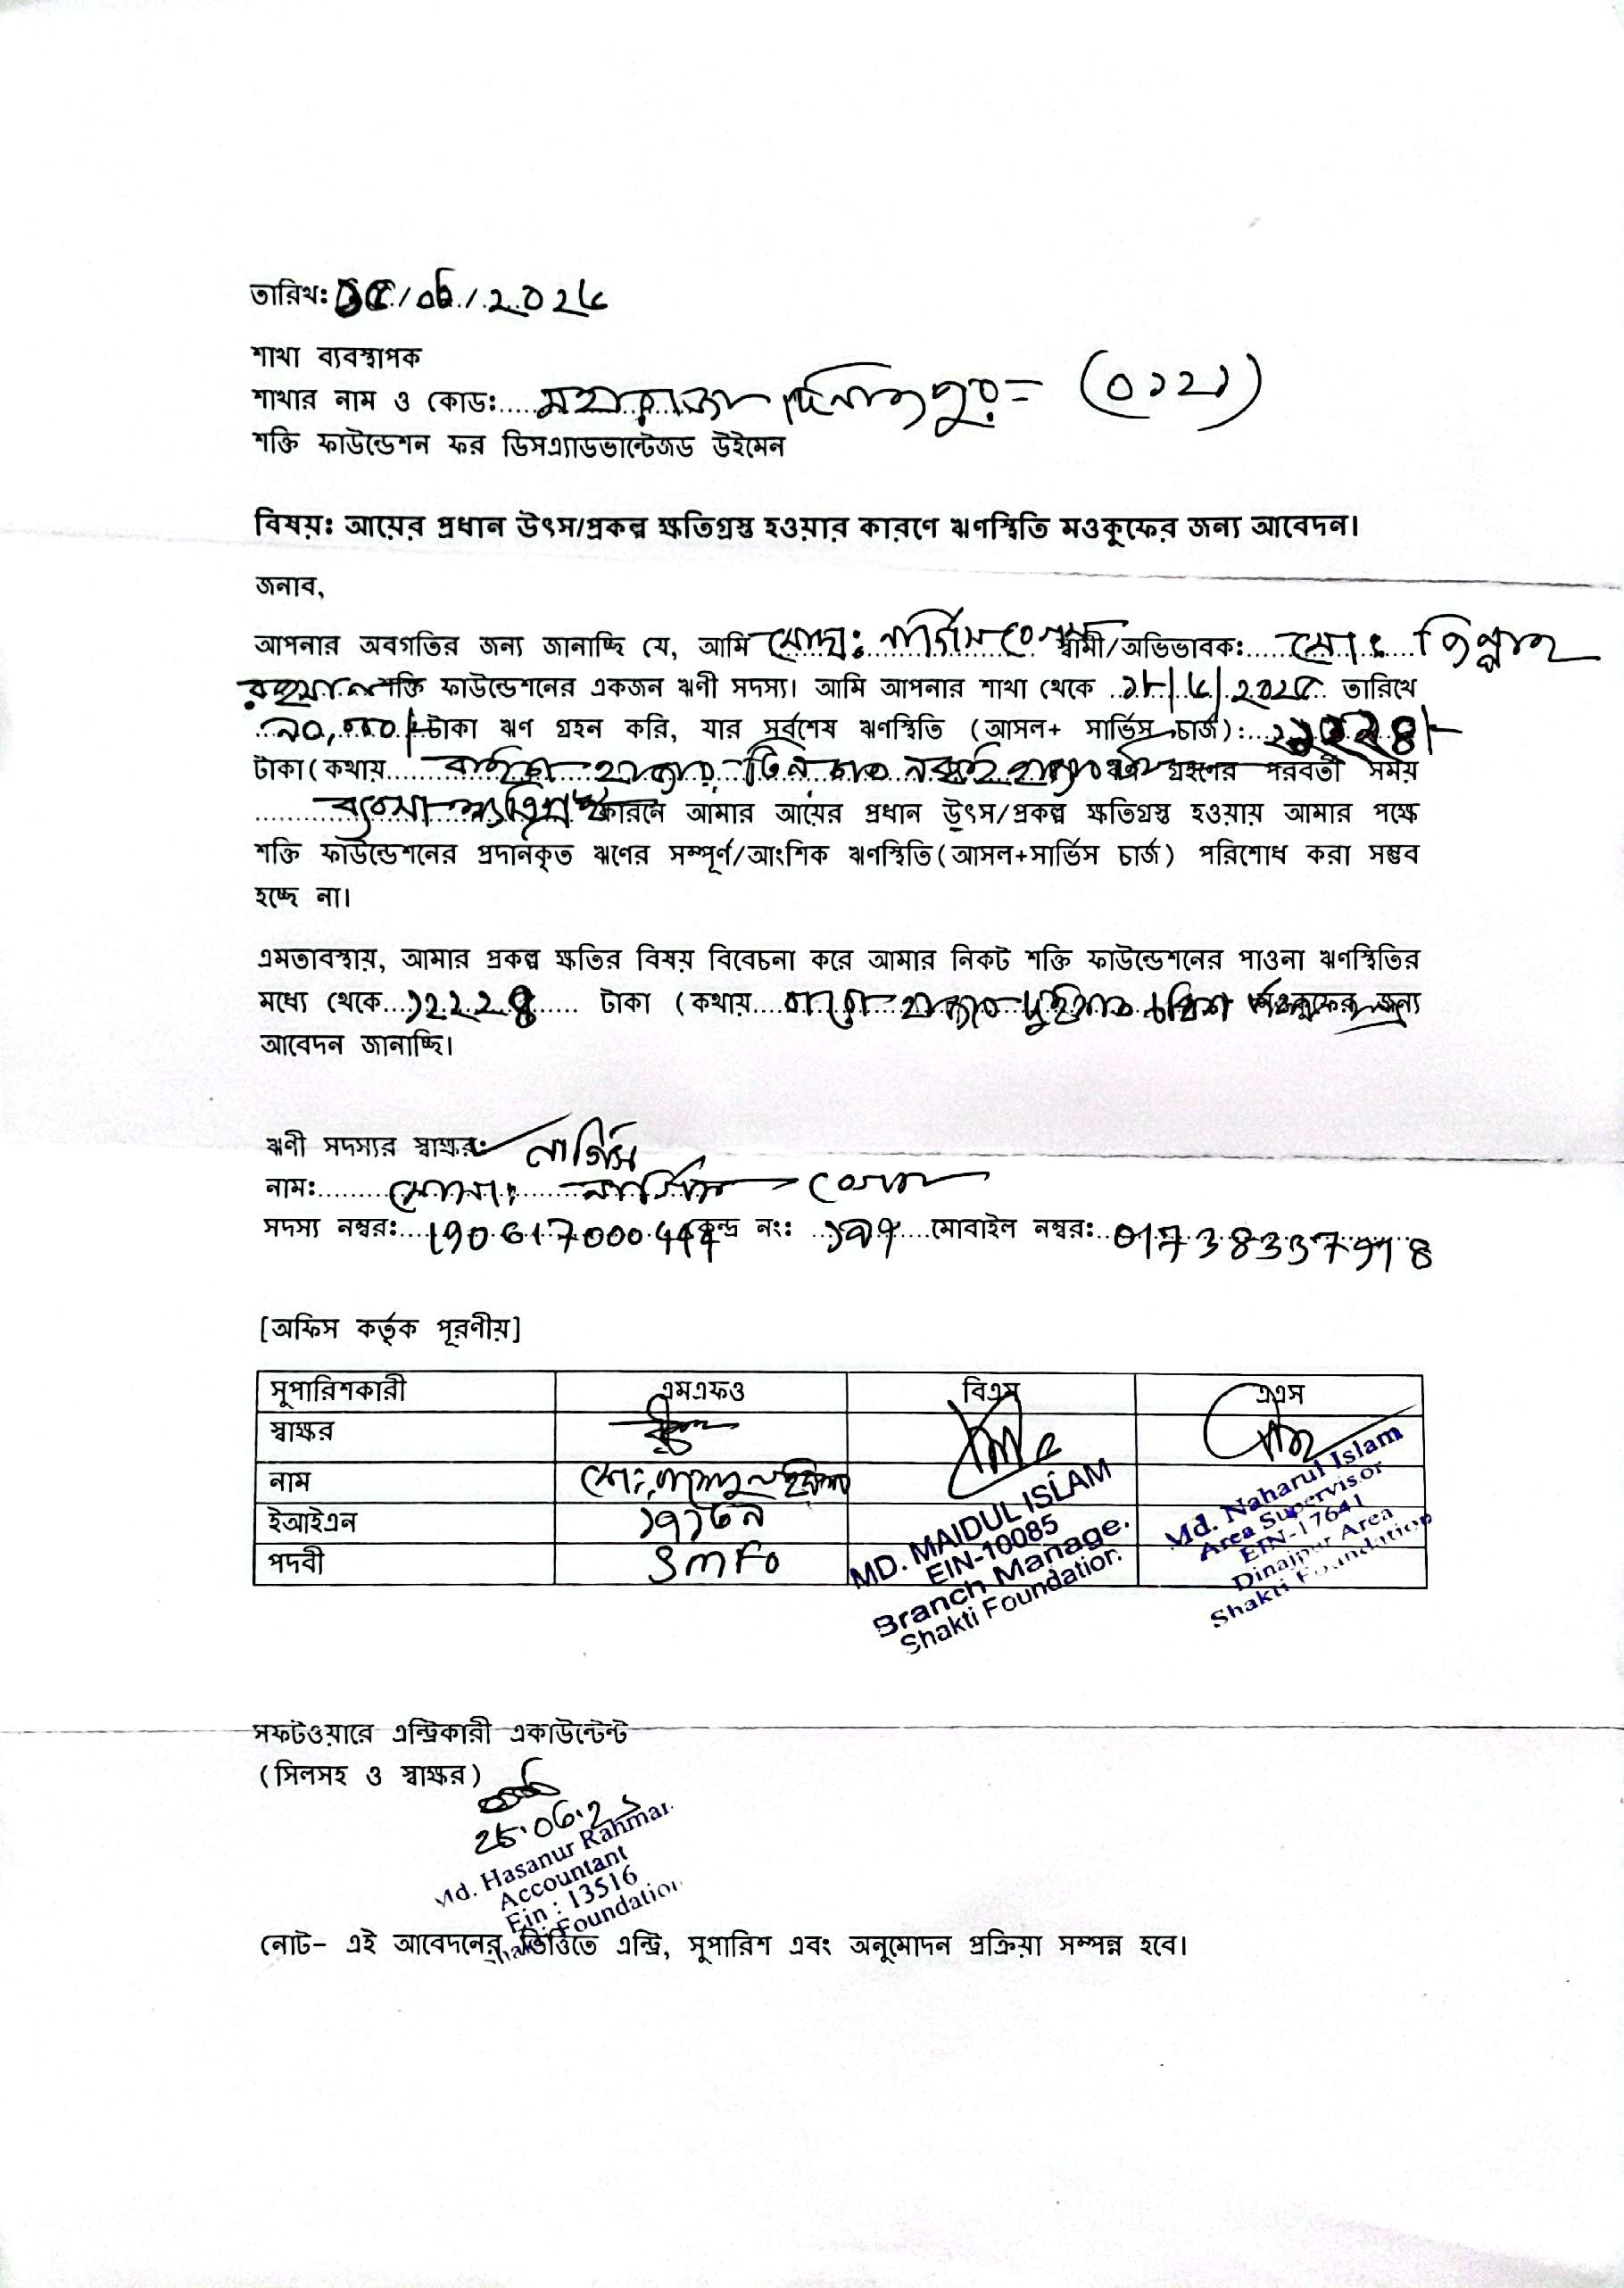 তারিখ: ১৫/০৬/২০২৫
শাখা ব্যবস্থাপক
শাখার নাম ও কোড: মহারাজা দিনাজপুর = (০১২১)
শক্তি ফাউন্ডেশন ফর ডিসএ্যাডভান্টেজড উইমেন
বিষয়: আয়ের প্রধান উৎস/প্রকল্প ক্ষতিগ্রস্ত হওয়ার কারণে ঋণস্থিতি মওকুফের জন্য আবেদন।
জনাব,
আপনার অবগতির জন্য জানাচ্ছি যে, আমি মোছা: নার্গিস বেগম স্বামী/অভিভাবক: মো:
রহমান শক্তি ফাউন্ডেশনের একজন ঋণী সদস্য। আমি আপনার শাখা থেকে তারিখে
টাকা ঋণ গ্রহন করি, যার সর্বশেষ ঋণস্থিতি (আসল+ সার্ভিস চার্জ):
টাকা (কথায় হাজার তিনশত ঋণ গ্রহণের পরবর্তী সময়
ব্যবসা ক্ষতিগ্রস্থ কারনে আমার আয়ের প্রধান উৎস/প্রকল্প ক্ষতিগ্রস্ত হওয়ায় আমার পক্ষে
শক্তি ফাউন্ডেশনের প্রদানকৃত ঋণের সম্পূর্ণ/আংশিক ঋণস্থিতি(আসল+সার্ভিস চার্জ) পরিশোধ করা সম্ভব
হচ্ছে না।
এমতাবস্থায়, আমার প্রকল্প ক্ষতির বিষয় বিবেচনা করে আমার নিকট শক্তি ফাউন্ডেশনের পাওনা ঋণস্থিতির
মধ্যে থেকে ১২২২৪ টাকা (কথায় বারো হাজার দুইশত চব্বিশ মওকুফের জন্য
আবেদন জানাচ্ছি।
ঋণী সদস্যর স্বাক্ষর: নার্গিস
নাম: মোছা: নার্গিস বেগম
সদস্য নম্বর: কেন্দ্র নং: মোবাইল নম্বর:
[অফিস কর্তৃক পূরণীয়]
সুপারিশকারী এমএফও বিএম এএস
স্বাক্ষর
নাম
ইআইএন
পদবী SMFO
MD. MAIDUL ISLAM
EIN-10085
Branch Manage.
Shakti Foundation
Md. Naharul Islam
Area Supervisor
EIN-17641
Dinajpur Area
Shakti Foundation
সফটওয়ারে এন্ট্রিকারী একাউন্টেন্ট
(সিলসহ ও স্বাক্ষর)
25.06.2
Md. Hasanur Rahman
Accountant
Ein : 13516
Shakti Foundation
নোট- এই আবেদনের ভিত্তিতে এন্ট্রি, সুপারিশ এবং অনুমোদন প্রক্রিয়া সম্পন্ন হবে।